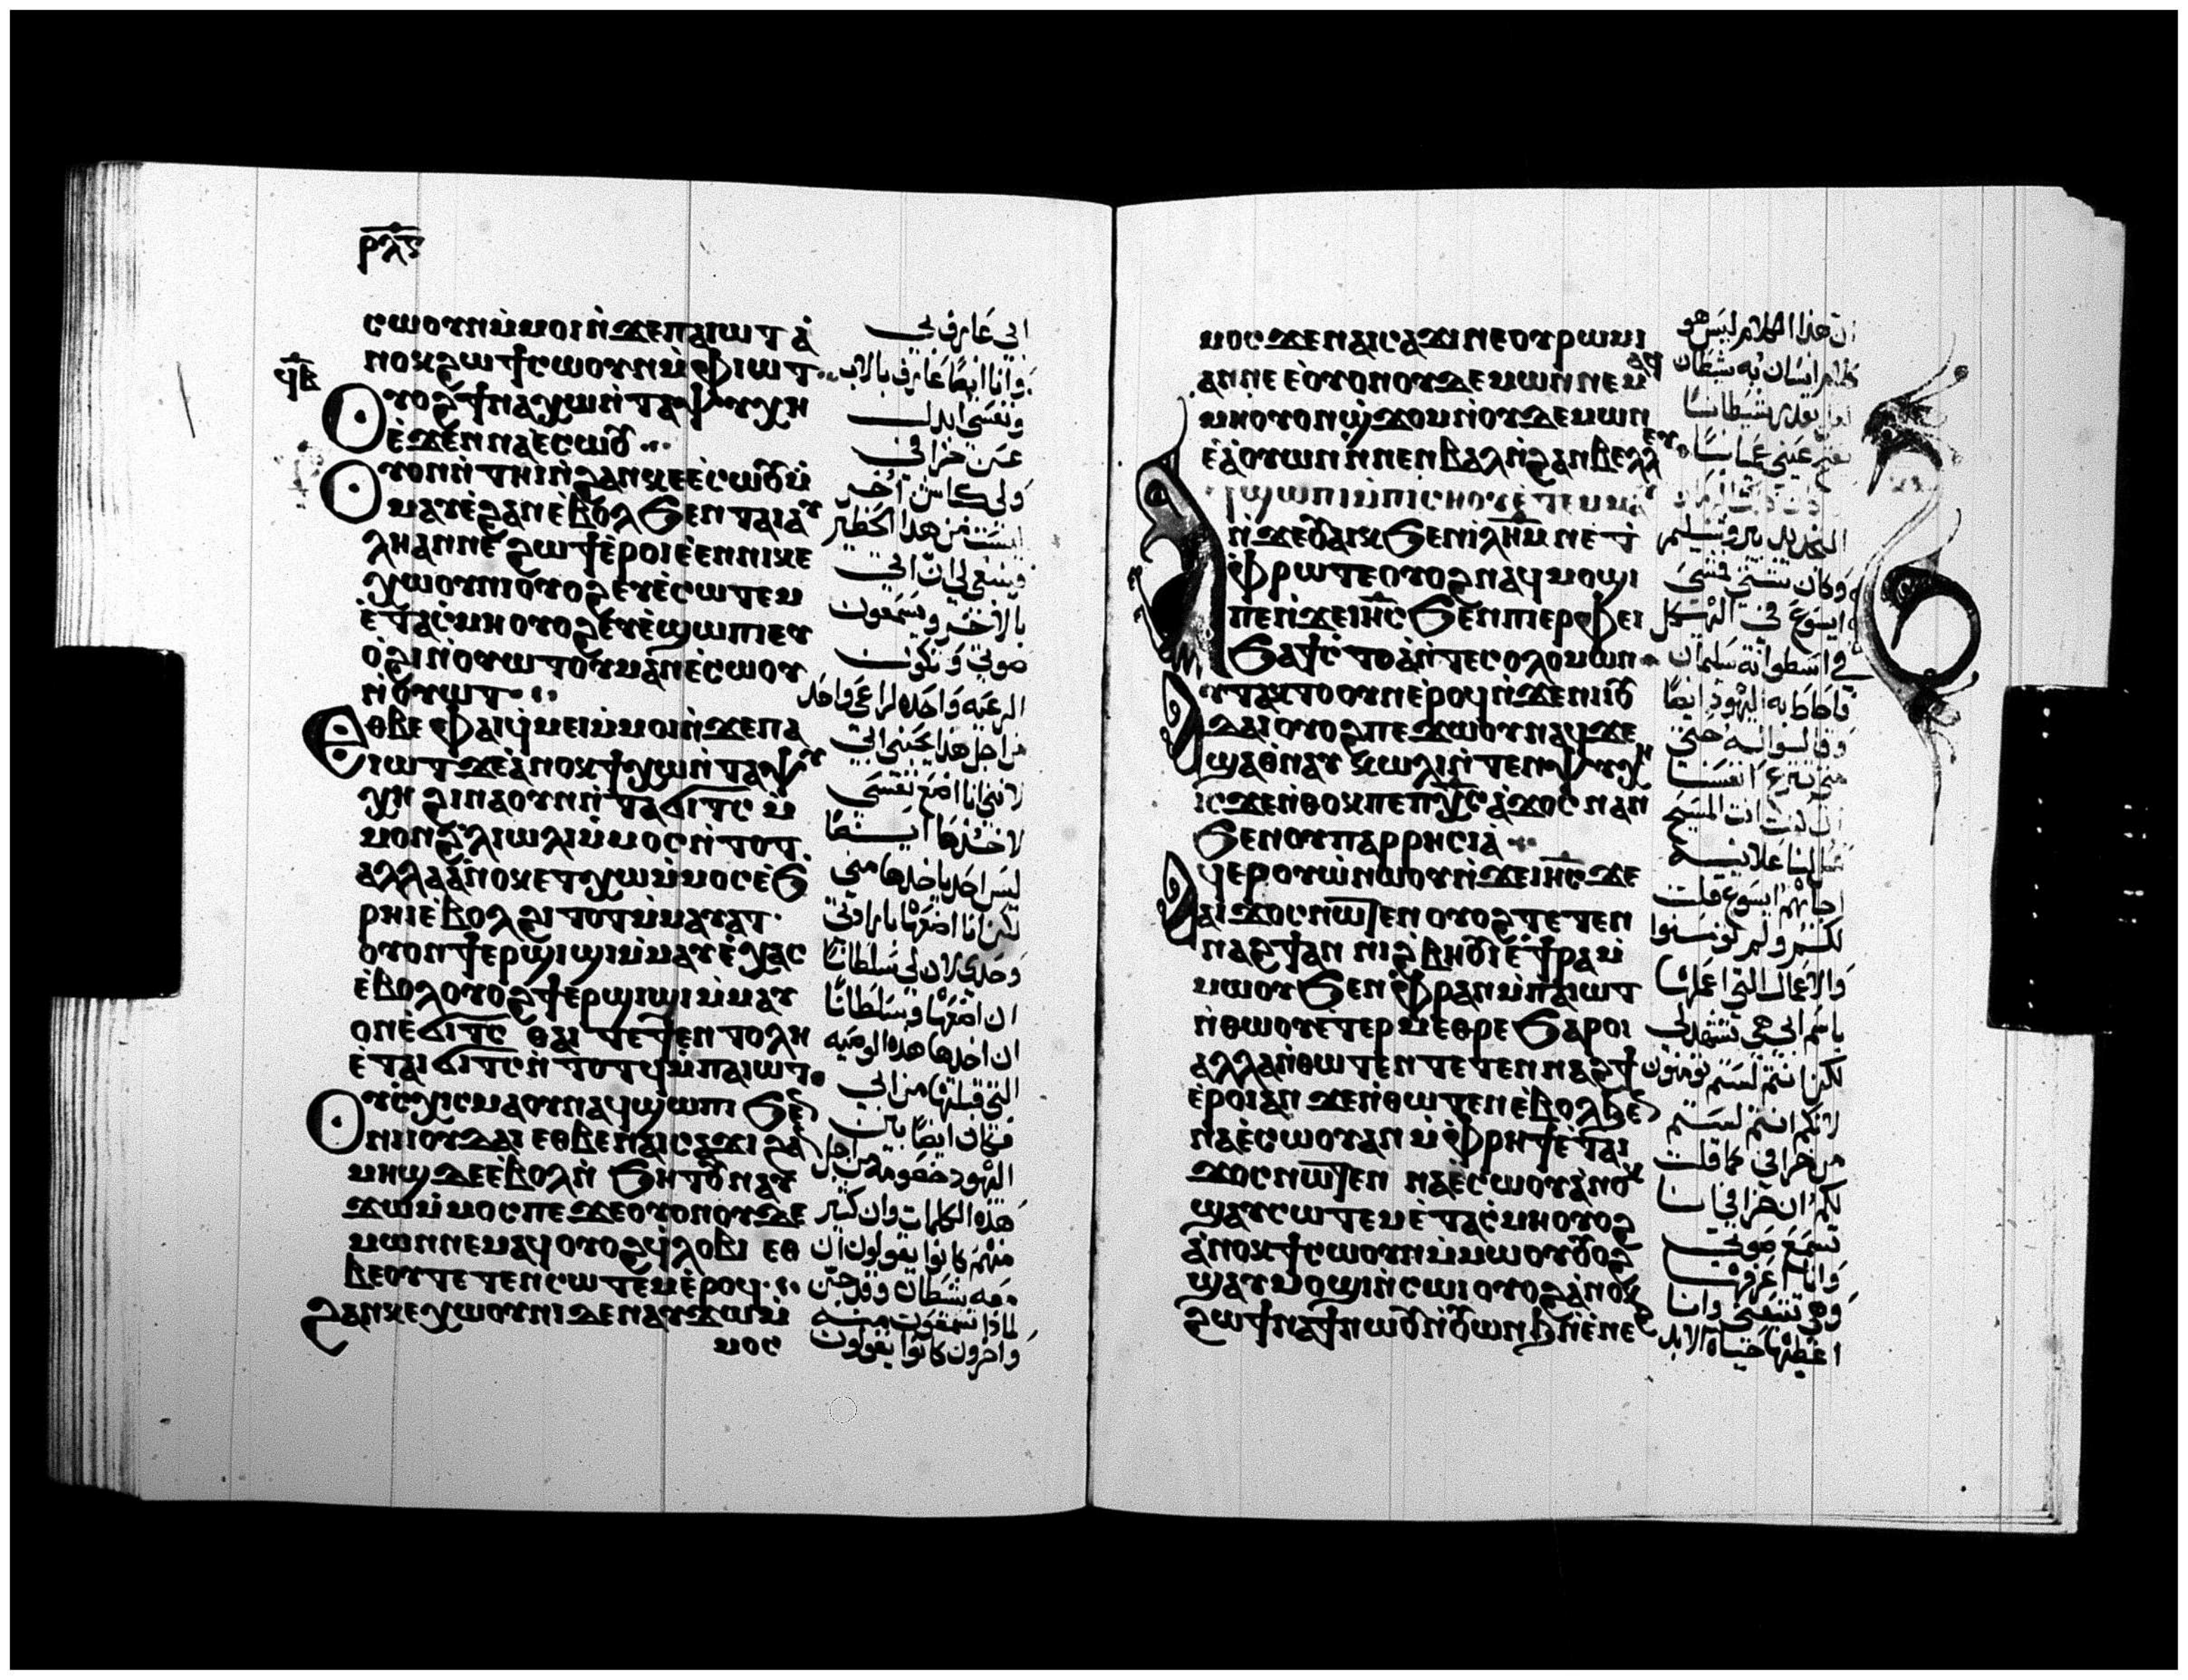 ⲣⲗⲋ
ⲥⲱⲟⲩⲛ ⲙ̀ⲙⲟⲓ ⲛ̀ϫⲉ ⲡⲁⲓⲱⲧ ⲁ̀
ⲛⲟⲕ ϩⲱ ϯⲥⲱⲟⲩⲛ ⲙ̀ⲫⲓⲱⲧ
ϥⲃ
ⲟⲩⲟϩ ϯⲛⲁⲭⲱ ⲛ̀ⲧⲁⲯⲩⲭⲏ
ⲉ̀ϫⲉⲛ ⲛⲁⲉ̀ⲥⲱⲟⲩ
ⲟⲩⲟⲛ ⲛ̀ⲧⲏⲓ ⲛ̀ϩⲁⲛⲕⲉⲉ̀ⲥⲱⲟⲩ ⲙ̀
ⲙⲁⲩ ⲉ̀ϩⲁⲛⲉ̀ⲃⲟⲗ ϧⲉⲛ ⲧⲁⲓⲁⲩ
ⲗⲏ ⲁⲛ ⲛⲉ ϩⲱϯ ⲉ̀ⲣⲟⲓ ⲉ̀ⲉⲛ ⲛⲓⲕⲉ
ⲭⲱⲟⲩⲛⲓ ⲟⲩⲟϩ ⲉⲩⲉ̀ⲥⲱⲧⲉⲙ
ⲉ̀ⲧⲁⲥ̀ⲙⲏ ⲟⲩⲟϩ ⲉⲩⲉ̀ϣⲱⲡⲓ ⲉⲩ
ⲟ̀ϩⲓ ⲛ̀ⲟⲩⲱⲧ ⲟⲩⲙⲁⲛⲉ̀ⲥⲱⲟⲩ
ⲛ̀ⲟⲩⲱⲧ
ⲉⲑⲃⲉ ⲫⲁⲓ ϥ̀ⲙⲉⲓ ⲙ̀ⲙⲟⲓ ⲛ̀ϫⲉ ⲡⲁ
ⲓⲱⲧ ϫⲉ ⲁ̀ⲛⲟⲕ ϯⲭⲱ ⲛ̀ⲧⲁⲯⲩ
ⲭⲏ ϩⲓⲛⲁ ⲟⲩⲛ ⲛ̀ⲧⲁϭⲓⲧⲥ ⲙ̀
ⲙⲟⲛ ϩ̀ⲗⲓ ⲱⲗⲓ ⲙ̀ⲙⲟⲥ ⲛ̀ⲧⲟⲧ
ⲁⲗⲗⲁ ⲁ̀ⲛⲟⲕ ⲉⲧⲭⲱ ⲙ̀ⲙⲟⲥ ⲉ̀ϧ
ⲣⲏⲓ ⲉ̀ⲃⲟⲗ ϩⲓⲧⲟⲧ ⲙ̀ⲙⲁⲩⲁⲧ
ⲟⲩⲟⲛϯ ⲉⲣϣⲓϣⲓ ⲙ̀ⲙⲁⲩ ⲉ̀ⲭⲁⲥ
ⲉ̀ⲃⲟⲗ ⲟⲩⲟϩ ϯⲉⲣϣⲓϣⲓ ⲙ̀ⲙⲁⲩ
ⲟⲛ ⲉ̀ϭⲓⲧⲥ ⲑⲁⲓ ⲧⲉ ϯⲉⲛⲧⲟⲗⲏ
ⲉ̀ⲧⲁⲓϭⲓⲧⲥ ⲛ̀ⲧⲟⲧϥ ⲙ̀ⲡⲁⲓⲱⲧ
ⲟⲩⲥ̀ⲭⲓⲥⲙⲁ ⲟⲩⲛ ⲁϥϣⲱⲡⲓ ϧⲉ
ⲛ ⲛⲓⲓⲟⲩⲇⲁⲓ ⲉⲑⲃⲉ ⲛⲁⲓⲥⲁϫⲓ ϩⲁ
ⲙⲏϣ ⲇⲉ ⲉ̀ⲃⲟⲗ ⲛ̀ϧⲏⲧⲟⲩ ⲛⲁⲩ
ϫⲱ ⲙ̀ⲙⲟⲥ ⲡⲉ ϫⲉ ⲟⲩⲟⲛ ⲟⲩⲇⲉ
ⲙⲱⲛ ⲛⲉⲙⲁϥ ⲟⲩⲟϩ ϥ̀ⲗⲟⲃⲓ ⲉⲑ
ⲃⲉ ⲟⲩ ⲧⲉⲧⲉⲛⲥⲱⲧⲉⲙ ⲉ̀ⲣⲟϥ
ϩⲁⲛⲕⲉⲭⲱⲟⲩⲛⲓ ⲇⲉ ⲛⲁⲩϫⲱ ⲙ̀
ⲙⲟⲥ
ابي عارف بي
وانا ايضا عارف بالاب
ونفسي ابدل
عن خرافي
ولي كباش اخر
ليست من هذا الحظير
وينبغي لي ان اتي
بالاخر ويسمعون
صوتي وتكون
الرعيه واحده لراعي واحد
من اجل هذا يحبني ابي
لانني انا اضع نفسي
لاخذها ايضا
ليس احد ياخذها مني
لكن انا اضعها بارادتي
وحدي لان لي سلطانا
ان اضعها وسلطانا
ان اخذها هذه الوصيه
التي قبلتها من ابي
فكان ايضا بين
اليهود خصومه من اجل
هذه الكلمات وان كثير
منهم كانوا يقولون ان
معه شيطان وقد جن
لماذا تسمعون منه
واخرون كانوا يقولون
ⲙⲟⲥ ϫⲉ ⲛⲁⲓⲥⲁϫⲓ ⲛⲉ ⲟⲩⲣⲱⲙⲓ
ⲁⲛ ⲛⲉ ⲉ̀ⲟⲩⲟⲛ ⲟⲩⲇⲉⲙⲱⲛ ⲛⲉⲙⲁϥ
ⲙⲏ ⲟⲩⲟⲛ ϣ̀ϫⲟⲙ ⲛ̀ⲟⲩⲇⲉⲙⲱⲛ
ⲉ̀ⲁ̀ⲟⲩⲱⲛ ⲛ̀ⲛⲉⲛⲃⲁⲗ ⲛ̀ϩⲁⲛⲃⲉⲗⲗⲉⲩ
ⲛ ϫⲉ ⲟⲩⲁⲓⲕ ϧⲉⲛ ⲓⲗⲏⲙ ⲛⲉ ⲧ
ⲫ̀ⲣⲱ ⲧⲉ ⲟⲩⲟϩ ⲛⲁϥⲙⲟϣⲓ
ⲡⲉ ⲛ̀ϫⲉ ⲓⲏⲥ ϧⲉⲛ ⲡⲓⲉⲣⲫⲉⲓ
ϧⲁ ϯⲥ̀ⲧⲟⲁ̀ ⲛ̀ⲧⲉ ⲥⲟⲗⲟⲙⲱⲛ
ⲁⲩⲧⲁⲕⲧⲟ ⲟⲩⲛ ⲉ̀ⲣⲟϥ ⲛ̀ϫⲉ ⲛⲓⲓⲟⲩ
ⲇⲁⲓ ⲟⲩⲟϩ ⲡⲉϫⲱⲟⲩ ⲛⲁϥ ϫⲉ
ϣⲁ ⲑ̀ⲛⲁⲩ ⲕ̀ⲱⲗⲓ ⲛ̀ⲧⲉⲛⲯⲩⲭⲏ
ⲓⲥϫⲉ ⲛ̀ⲑⲟⲕ ⲡⲉ ⲡⲭ̅ⲥ ⲁ̀ϫⲟⲥ ⲛⲁⲛ
ϧⲉⲛ ⲟⲩⲡⲁⲣⲣⲏⲥⲓⲁ
ⲁϥⲉⲣⲟⲩⲱ̀ ⲛⲱⲟⲩ ⲛ̀ϫⲉ ⲓⲏⲥ ϫⲉ
ⲁⲓϫⲟⲥ ⲛⲱⲧⲉⲛ ⲟⲩⲟϩ ⲧⲉⲧⲉⲛ
ⲛⲁϩϯ ⲁⲛ ⲛⲓϩ̀ⲃⲏⲟⲩⲓ ⲉ̀ϯⲣⲁ ⲙ̀
ⲙⲱⲟⲩ ϧⲉⲛ ⲫ̀ⲣⲁⲛ ⲙ̀ⲡⲁⲓⲱⲧ
ⲛ̀ⲑⲱⲟⲩ ⲉⲧⲉⲣⲙⲉⲑⲣⲉ ϧⲁⲣⲟⲓ
ⲁⲗⲗⲁ ⲛ̀ⲑⲱⲧⲉⲛ ⲧⲉⲧⲉⲛⲛⲁϩϯ
ⲉ̀ⲣⲟⲓ ⲁⲛ ϫⲉ ⲛ̀ⲑⲱⲧⲉⲛ ⲉ̀ⲃⲟⲗ ϧⲉⲛ
ⲛⲁⲉ̀ⲥⲱⲟⲩ ⲁⲛ ⲙ̀ⲫ̀ⲣⲏϯ ⲉ̀ⲧⲁⲓ
ϫⲟⲥ ⲛⲱⲧⲉⲛ ⲛⲁⲉ̀ⲥⲱⲟⲩ ⲁ̀ⲛⲟⲕ
ϣⲁⲩⲥⲱⲧⲉⲙ ⲉ̀ⲧⲁⲥ̀ⲙⲏ ⲟⲩⲟϩ
ⲁ̀ⲛⲟⲕ ϯⲥⲱⲟⲩⲛ ⲙ̀ⲙⲱⲟⲩ ⲟⲩⲟϩ
ϣⲁⲩⲙⲟϣⲓ ⲛ̀ⲥⲱⲓ ⲟⲩⲟϩ ⲁ̀ⲛⲟⲕ
ϩⲱ ϯⲛⲁϯ ⲛⲱⲟⲩ ⲛ̀ⲟⲩⲱⲛϧ ⲛ̀ⲉ̀ⲛⲉϩ
ان هذا الكلام ليس هو
كلام انسان به شيطان
يفتح عيني عميانا
التجديد بيروشليم
وكان شتى فمشى
ايسوع في الهيكل
في اسطوانة سليمان
فاحاط به اليهود ايضا
وقالوا له حتى
متى تنزع انفسنا
ان كنت انت المسيح
قل لنا علانيه
اجابهم ايسوع قلت
لكم ولم تومنوا
والاعمال التي اعملها
باسم ابي هي تشهد لي
لكن انتم لستم تومنون
لانكم انتم لستم
من خرافي كما قلت
لكم ان خرافي انا
تسمع صوتي
وانا اعرفها
وهي تتبعني وانا
اعطيها حياة الابد